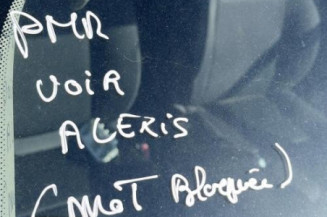 PMR
VOIR
ALERIS
(MOT Bloquée)